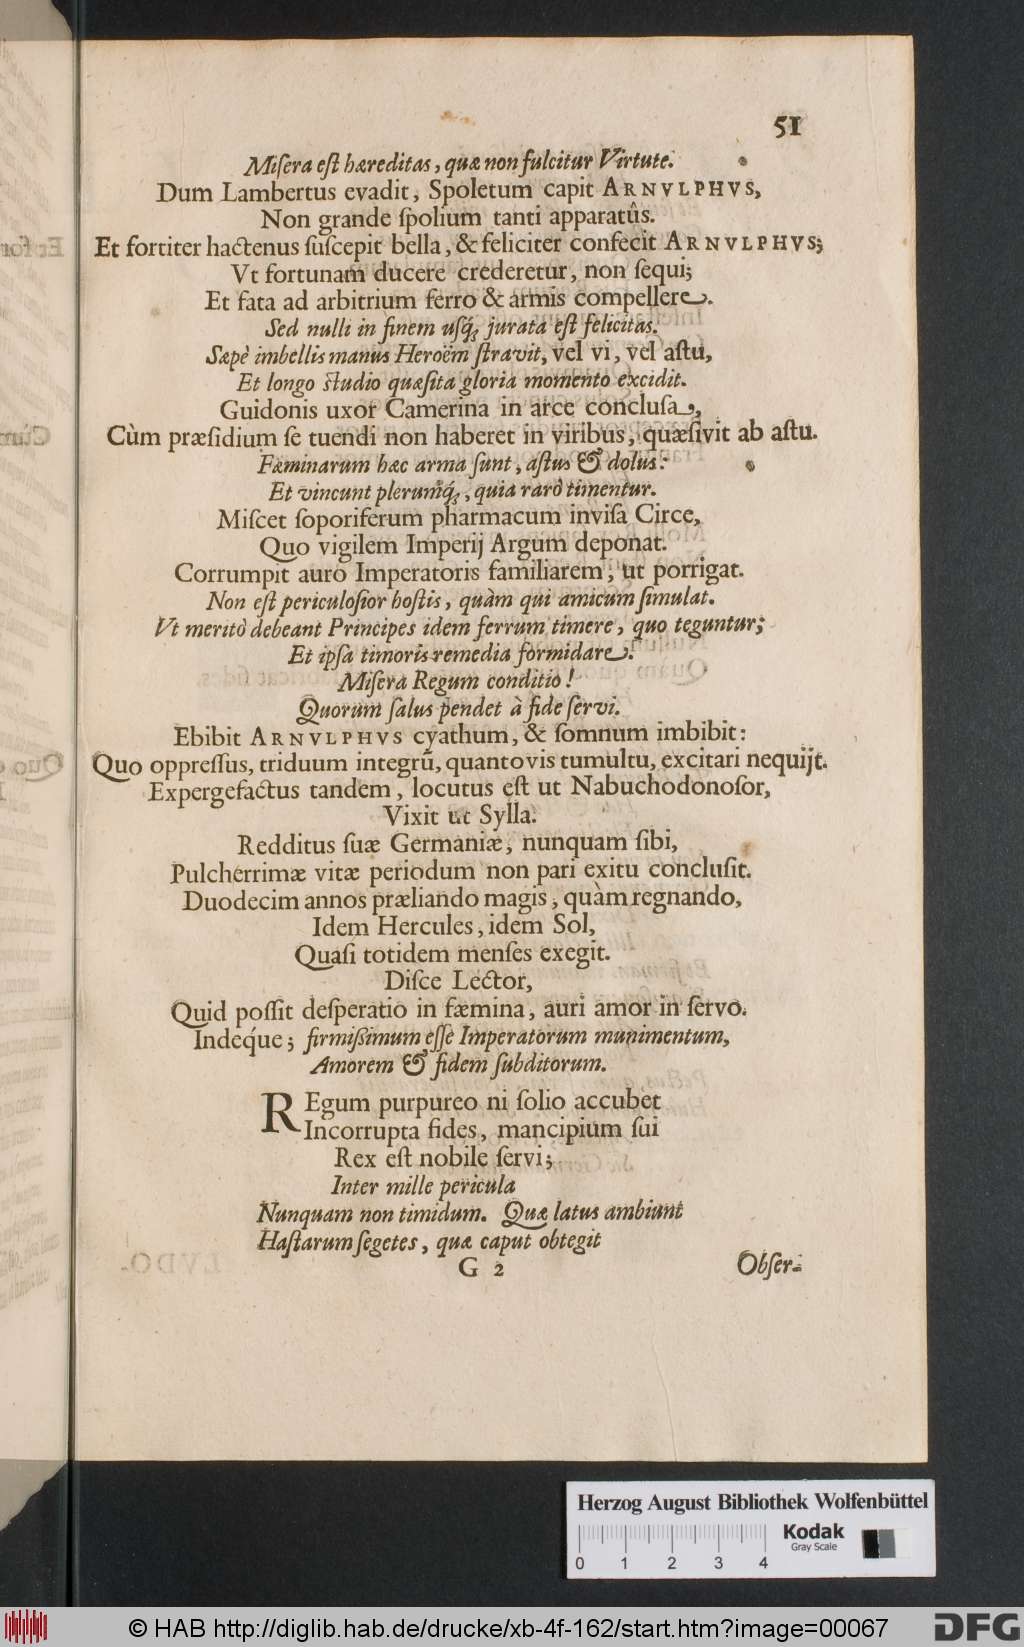 51
Miſera eſt hæreditas, quæ non fulcitur Virtute.
Dum Lambertus evadit, Spoletum capit ARNVLPHVS,
Non grande ſpolium tanti apparatûs.
Et fortiter hactenus ſuſcepit bella, & feliciter confecit ARNVLPHVS;
Vt fortunam ducere crederetur, non ſequi;
Et fata ad arbitrium ferro & armis compellere.
Sed nulli in finem uſq́; jurata eſt felicitas.
Sæpè imbellis manus Heroëm ſtravit, vel vi, vel aſtu,
Et longo ſtudio quæſita gloria momento excidit.
Guidonis uxor Camerina in arce concluſa,
Cùm præſidium ſe tuendi non haberet in viribus, quæſivit ab aſtu.
Fæminarum hæc arma ſunt, aſtus & dolus:
Et vincunt plerumq́;, quia rarò timentur.
Miſcet ſoporiferum pharmacum inviſa Circe,
Quo vigilem Imperij Argum deponat.
Corrumpit auro Imperatoris familiarem, ut porrigat.
Non eſt periculoſior hoſtis, quàm qui amicum ſimulat.
Vt meritò debeant Principes idem ferrum timere, quo teguntur;
Et ipſa timoris remedia formidare.
Miſera Regum conditio!
Quorum ſalus pendet à fide ſervi.
Ebibit ARNVLPHVS cyathum, & ſomnum imbibit:
Quo oppreſſus, triduum integrū, quantovis tumultu, excitari nequijt.
Expergefactus tandem, locutus eſt ut Nabuchodonoſor,
Vixit ut Sylla.
Redditus ſuæ Germaniæ, nunquam ſibi,
Pulcherrimæ vitæ periodum non pari exitu concluſit.
Duodecim annos præliando magis, quàm regnando,
Idem Hercules, idem Sol,
Quaſi totidem menſes exegit.
Diſce Lector,
Quid poſſit deſperatio in fæmina, auri amor in ſervo.
Indéque; firmißimum eſſe Imperatorum munimentum,
Amorem & fidem ſubditorum.
REgum purpureo ni ſolio accubet
Incorrupta fides, mancipium ſui
Rex eſt nobile ſervi;
Inter mille pericula
Nunquam non timidum. Quæ latus ambiunt
Haſtarum ſegetes, quæ caput obtegit
G 2 Obſer-
Herzog August Bibliothek Wolfenbüttel
0 1 2 3 4
Kodak
Gray Scale
© HAB http://diglib.hab.de/drucke/xb-4f-162/start.htm?image=00067
DFG